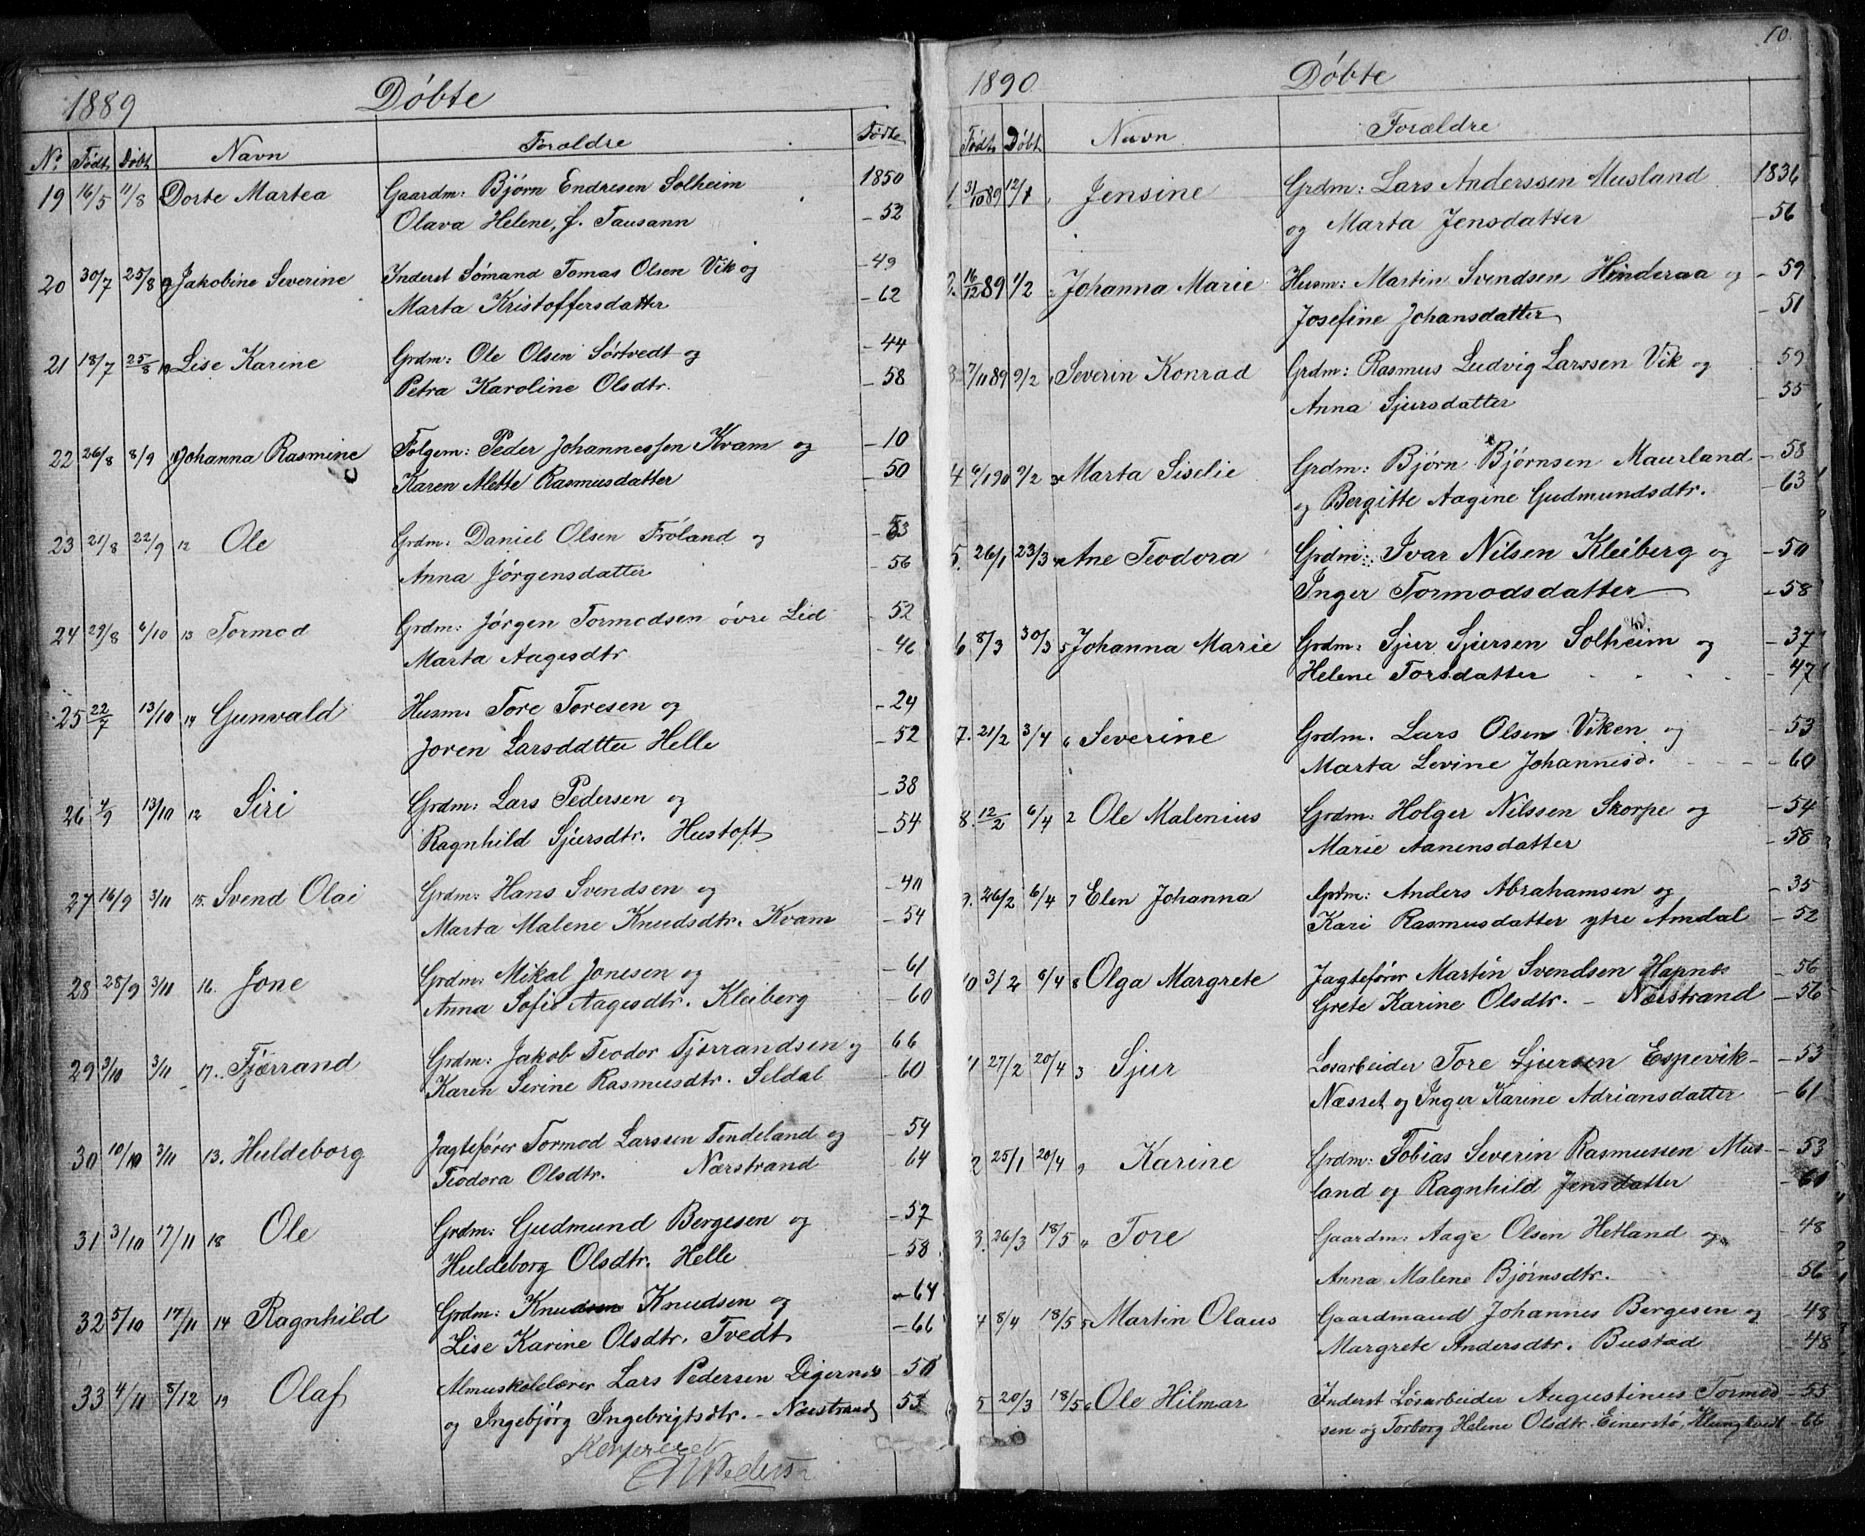 1889 Döbte
No Födt Döbt Navn Forældre Födte
19 16/5 11/8 Dorte Martea Gaardm: Bjørn Endresen Solheim 1850
Olava Helene, f. Tausann - 52
20 30/7 25/8 9 Jakobine Severine Inderst Sømand Tomas Olsen Vik og - 49
Marta Kristoffersdatter - 62
21 18/7 25/8 10 Lise Karine Grdm: Ole Olsen Sørtvedt og - 44
Petra Karoline Olsdtr. - 58
22 26/8 8/9 11 Johanna Rasmine Folgem: Peder Johannessen Kvam og - 10
Karen Mette Rasmusdatter - 50
23 21/8 22/9 12 Ole Grdm: Daniel Olsen Fröland og - 53
Anna Jørgensdatter - 56
24 29/8 6/10 13 Tormod Grdm: Jørgen Tormodsen övre Lid - 52
Marta Aagesdtr - 46
25 22/7 13/10 14 Gunvald Husm. Tore Toresen og - 24
Joren Larsddtter Helle - 52
26 4/9 13/10 12 Siri Grdm: Lars Pedersen og - 38
Ragnhild Sjursdtr. Hustoft - 54
27 16/9 3/11 15. Svend Olai Grdm: Hans Svendsen og - 40
Marta Malene Knudsdtr. Kvam - 54
28 28/9 3/11 16. Jone Grdm: Mikal Jonesen og - 61
Anna Sofie Aagesdtr. Kleiberg - 60
29 3/10 3/11 17. Tjærrand Grdm: Jakob Teodor Tjærrandsen og 66
Karen Serine Rasmusdtr. Seldal - 60
30 10/10 3/11 13. Huldeborg Jagtefører Tormod Larssen Tendeland og - 54
Teodora Olsdtr. Nærstrand - 64
31 3/10 17/11 18 Ole Grdm: Gudmund Bergesen og - 57
Huldeborg Olsdtr. Helle - 58
32 5/10 17/11 14 Ragnhild Grdm: Knudsen Knudsen og - 64
Lise Karine Olsdtr. Tvedt - 66
33 4/11 8/12 19 Olaf Almuskolelærer Lars Pedersen Digernes - 50
og Ingebjørg Ingebrigtsdtr. - Nærstrand 53
Konfereret
1890 Döbte 10.
Födt Döbt Navn Forældre
1. 31/10 89 12/1 1 Jensine Grdm: Lars Anderssen Musland 1836
og Marta Jensdatter - 56
2. 16/12 89 1/2 2 Johanna Marie Husm: Martin Svendsen Hinderaa og - 59
Josefine Johansdatter - 51
3. 7/11 89 9/2 1 Severin Konrad Grdm: Rasmus Ludvig Larssen Vik og - 59
Anna Sjursdatter - 55
4 6/1 90 9/2 3 Marta Siselie Grdm: Bjørn Bjørnsen Maurland - 58
og Bergitte Aagine Gudmundsdtr. - 63
5. 26/1 23/3 4 Ane Teodora Grdm: Ivar Nilsen Kleiberg og - 50
Inger Tormodsdatter - 58
6 8/3 30/3 5 Johanna Marie Grdm: Sjur Sjursen Solheim og - 37
Helene Torsdatter - 47
7. 21/2 3/4 6 Severine Grdm. Lars Olsen Viken og - 53
Marta Levine Johannesd. - 60
8. 12/2 6/4 2 Ole Malenius Grdm: Holger Nilssen Skorpe og - 54
Marie Aanensdatter - 58
9. 26/2 6/4 7 Elen Johanna Grdm: Anders Abrahamsen og - 35
Kari Rasmusdatter ytre Amdal - 52
10 3/2 6/4 8 Olga Margrete Jagtefører Martin Svendsen Hapnes - 56
Grete Karine Olsdtr. - Nærstrand - 56
1 27/2 20/4 3 Sjur Løsarbeider Tore Sjursen Espevik- - 53
Næsset og Inger Karine Adriansdatter - 61
2 25/1 20/4 9 Karine Grdm: Tobias Severin Rasmussen Mus- - 53
land og Ragnhild Jensdatter - 60
3. 26/3 18/5 4 Tore Gaardm: Aage Olsen Hetland og - 48
Anna Malene Bjørnsdtr. - 56
4 8/4 18/5 5 Martin Olaus Gaardmand Johannes Bergesen og - 48
Margrete Andersdtr. Bustad - 48
5 20/3 18/5 6 Ole Hilmar Inderst Løsarbeider Augustinus Tormod - 55
sen og Torborg Helene Olsdtr. Einerstø, Klungtvedt - 66